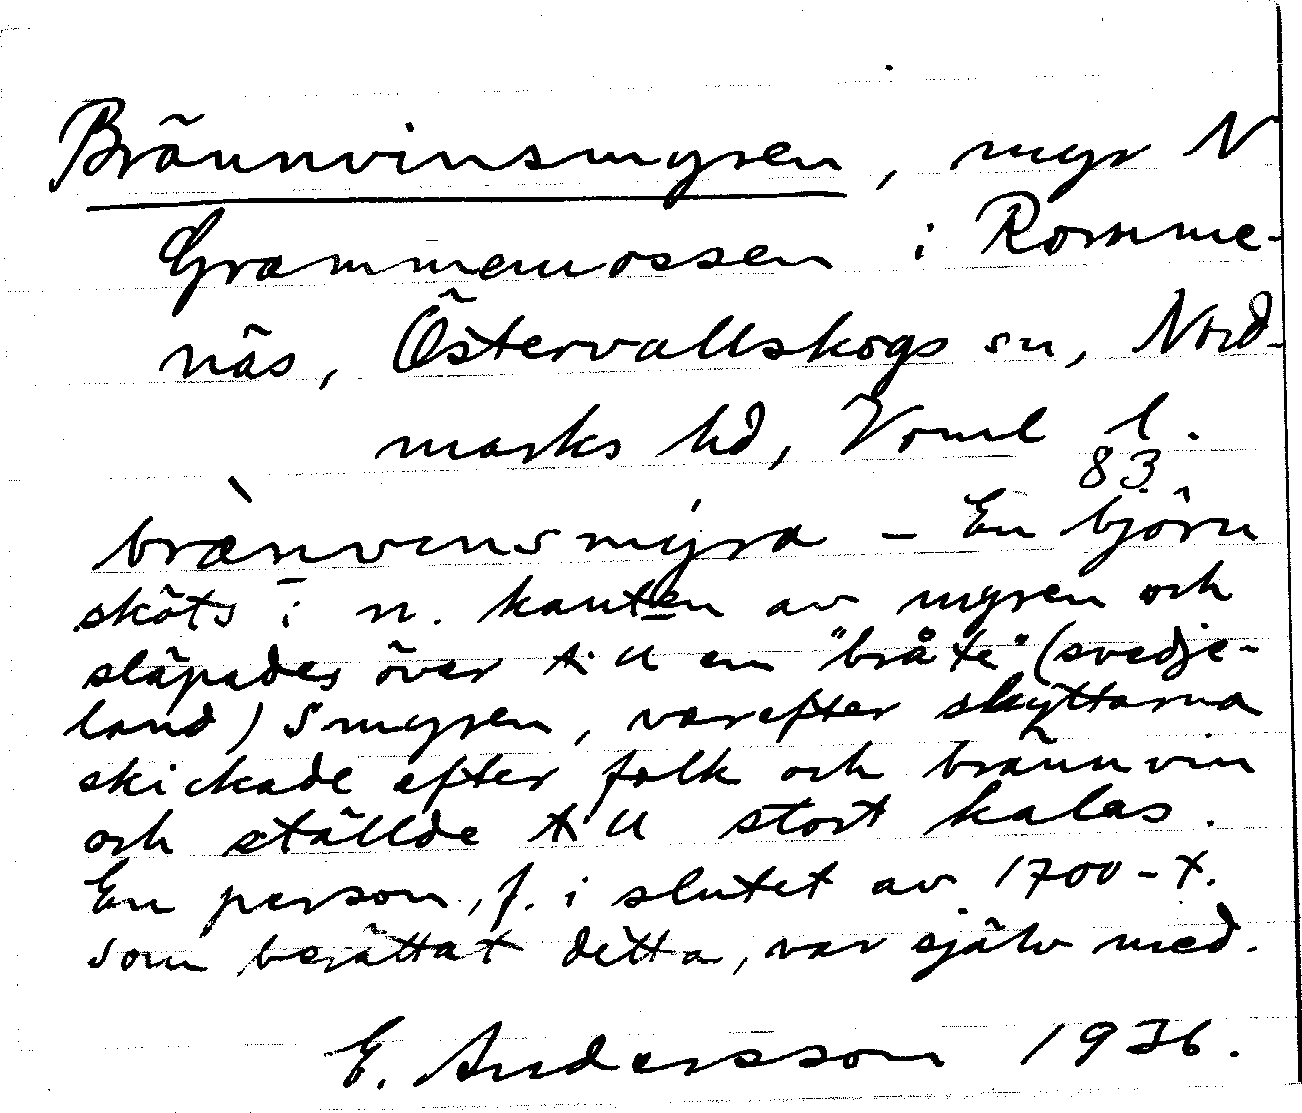 Brännvinsmyren, myr N
Grammemossen i Romme-
näs, Östervallskogs sn, Nord-
marks hd, Vrml l.
83
brænvensmýra – En björn
sköts i n. kanten av myren och
släpades över till en "bråte" (svedje-
land) S myren, varefter skyttarna
skickade efter folk och brännvin
och ställde till stort kalas.
En person, f. i slutet av 1700-t.
som berättat detta, var själv med.
E. Andersson 1936.